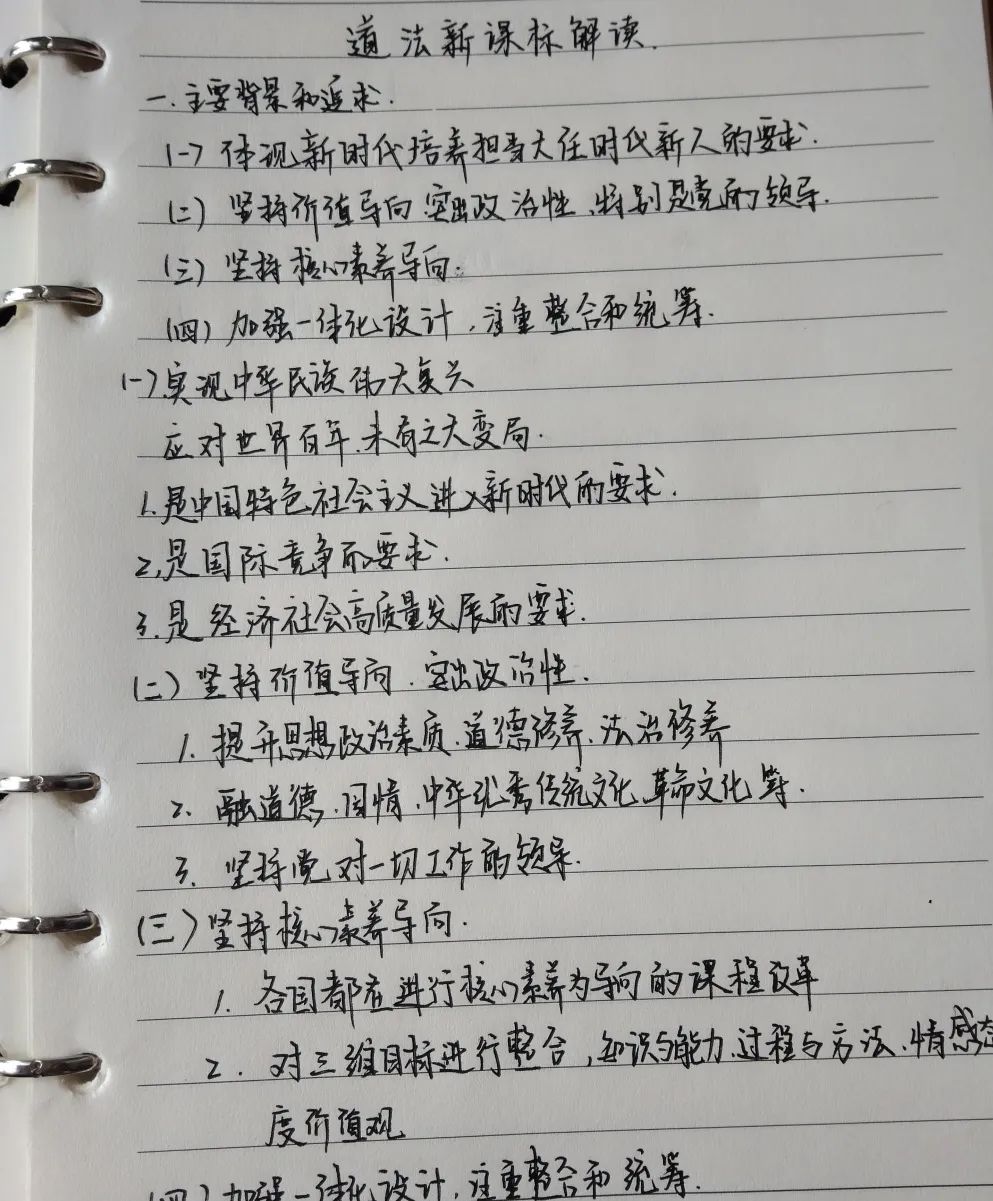 道法新课标解读.
一.主要背景和追求.
(一)体现新时代培养担当大任时代新人的要求.
(二)坚持价值导向.突出政治性.特别是党的领导.
(三)坚持核心素养导向。
(四)加强一体化设计,注重整合和统筹.
(一)实现中华民族伟大复兴
应对世界百年.未有之大变局.
1.是中国特色社会主义进入新时代的要求.
2.是国际竞争的要求.
3.是经济社会高质量发展的要求.
(二)坚持价值导向.突出政治性.
1.提升思想政治素质.道德修养.法治修养
2.融道德.国情.中华优秀传统文化.革命文化等.
3.坚持党对一切工作的领导.
(三)坚持核心素养导向.
1.各国都在进行核心素养为导向的课程改革
2.对三维目标进行整合,知识与能力.过程与方法.情感态
度价值观
(四)加强一体化设计,注重整合和统筹.